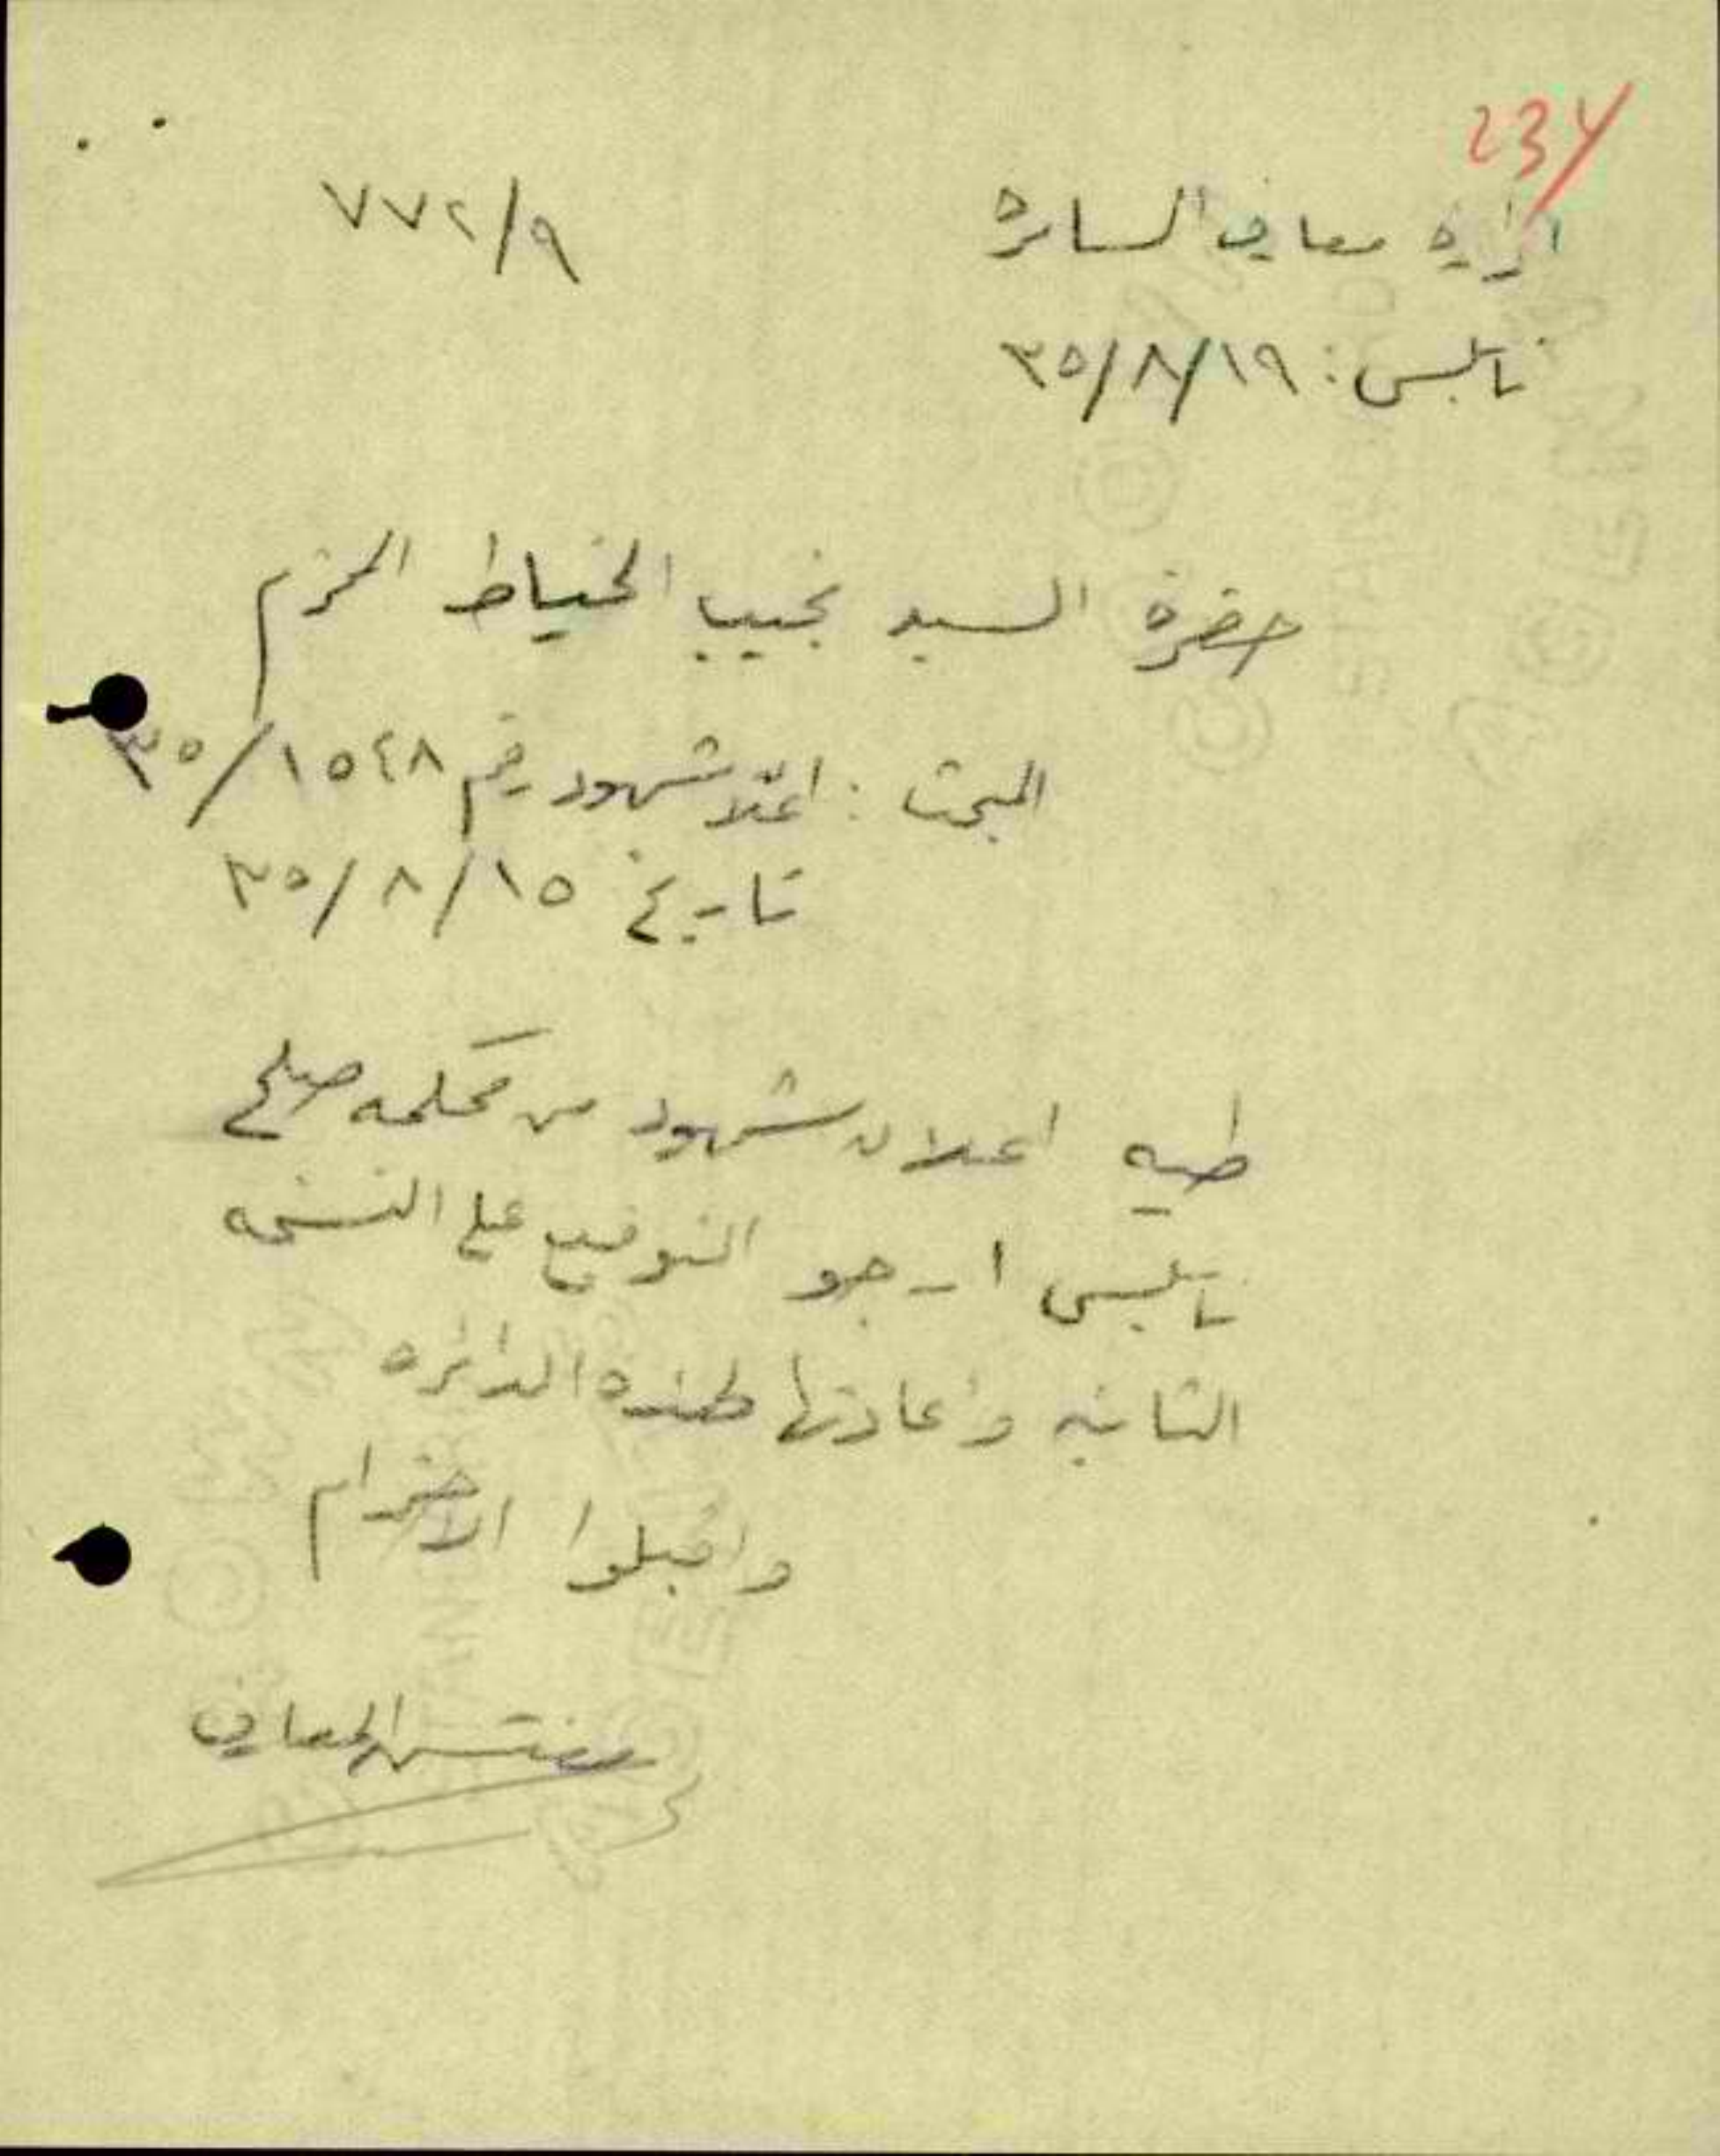 234
ادارة معارف السامرة
٧٧٢/٩
نابلس: ٣٥/٨/١٩
حضرة السيد نجيب الخياط المحترم
المبحث : اعلان شهود رقم ٣٥/١٥٤٨
تاريخ ٣٥/٨/١٥
طيه اعلان شهود من محكمه صلح
نابلس ارجو التوقيع على النسخه
الثانيه واعادتها لهذه الدائره
واقبلوا الاحترام
مفتش المعارف